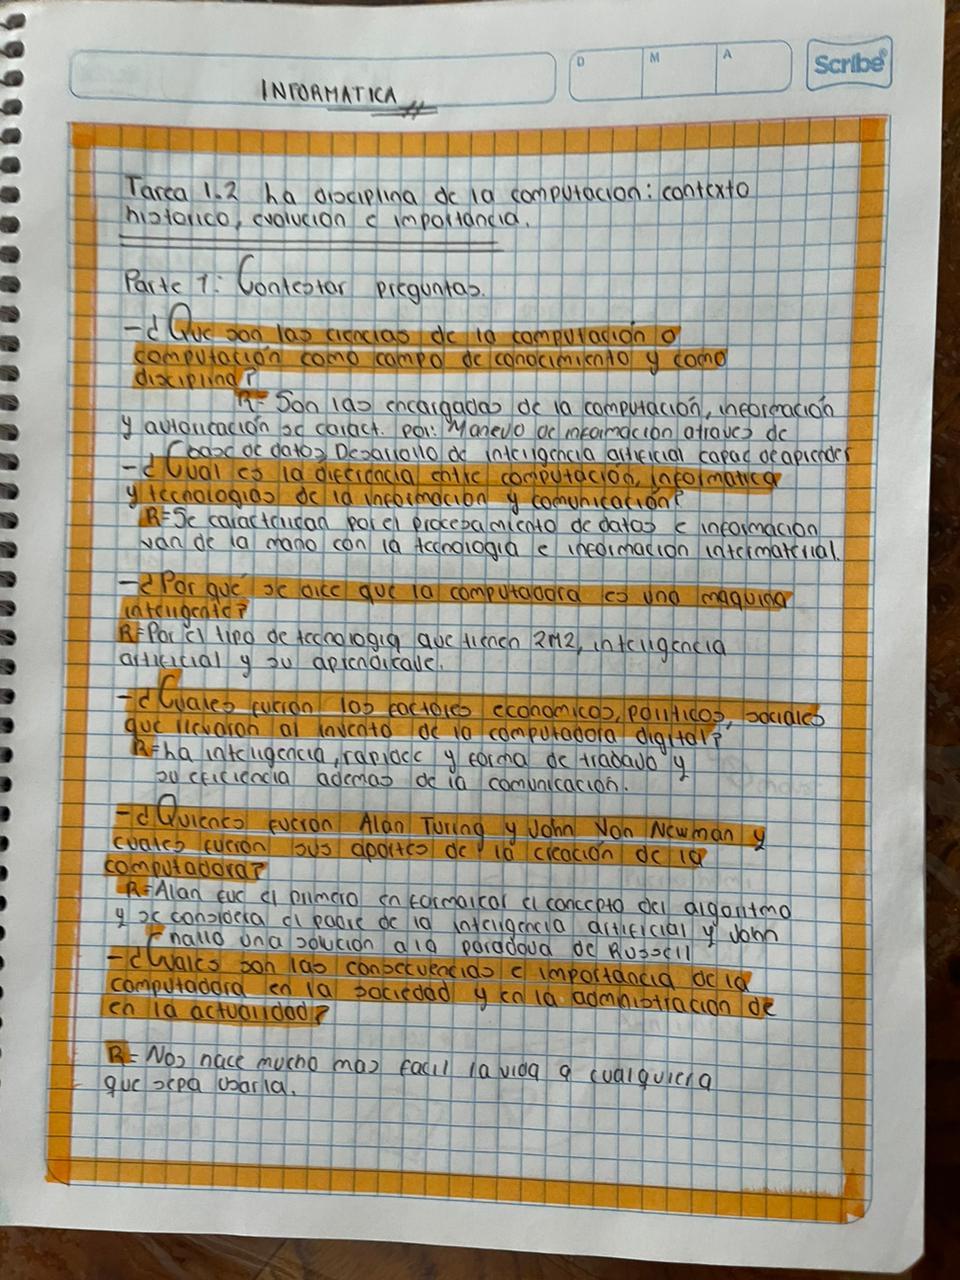 INFORMATICA
D M A
Scribe
Tarea 1.2 La disciplina de la computacion: contexto
historico, evolucion e importancia.
Parte 1: Contestar preguntas.
-¿Que son las ciencias de la computación o
computación como campo de conocimiento y como
disciplina?
R= Son las encargadas de la computación, información
y automatización se caract. por: Manejo de informacion atraves de
base de datos, Desarrollo de inteligencia artificial capaz de aprender
-¿Cual es la diferencia entre computación, informatica
y tecnologias de la informacion y comunicación?
R=Se caracterizan por el procesamiento de datos e informacion
van de la mano con la tecnologia e informacion intermaterial.
-¿Por qué se dice que la computadora es una maquina
inteligente?
R=Por el tipo de tecnologia que tienen 2M2, inteligencia
artificial y su aprendizaje.
-¿Cuales fueron los factores economicos, politicos, sociales
que llevaron al invento de la computadora digital?
R=La inteligencia, rapidez y forma de trabajo y
su eficiencia ademas de la comunicación.
-¿Quienes fueron Alan Turing y John Von Newman y
cuales fueron sus aportes de la creación de la
computadora?
R=Alan fue el primero en formalizar el concepto del algoritmo
y se considera el padre de la inteligencia artificial y John
hallo una solución a la paradoja de Russell
-¿Cuales son las consecuencias e importancia de la
computadora en la sociedad y en la administracion de
en la actualidad?
R= Nos hace mucho mas facil la vida a cualquiera
que sepa usarla.